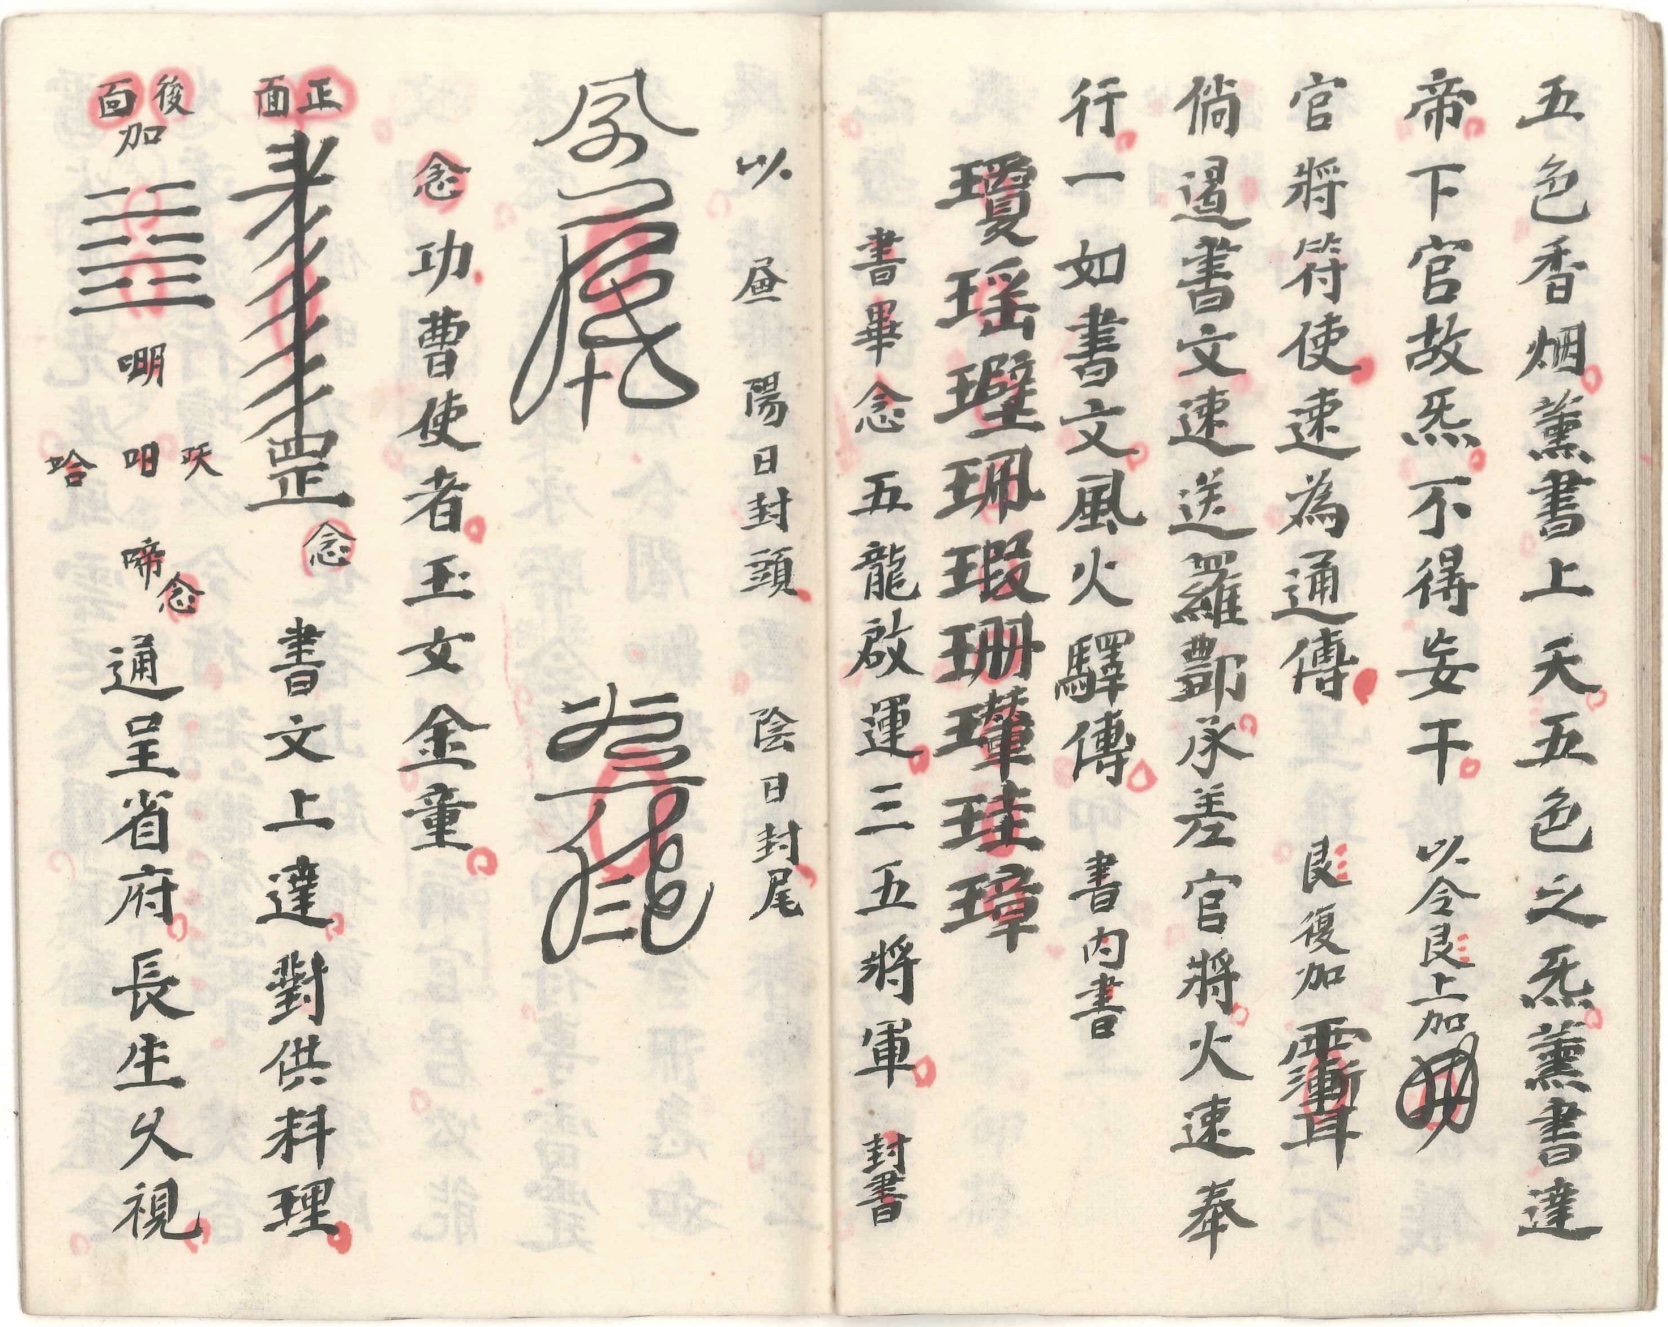 五色香烟薰書上天五色之炁薰書達
帝下官故炁不得妄干 以令艮上加
官將符使速為通傳 艮復加
倘遏書文速送羅酆承差官將火速奉
行一如書文風火驛傳 書內書
瓊瑤璧珮瑕珊珪璋
書畢念五龍啟運三五將軍 封書
以 陽日封頭 陰日封尾
念功曹使者玉女金童
正面 罡 念 書文上達對供料理
後面加 啼 念 通呈省府長生久視